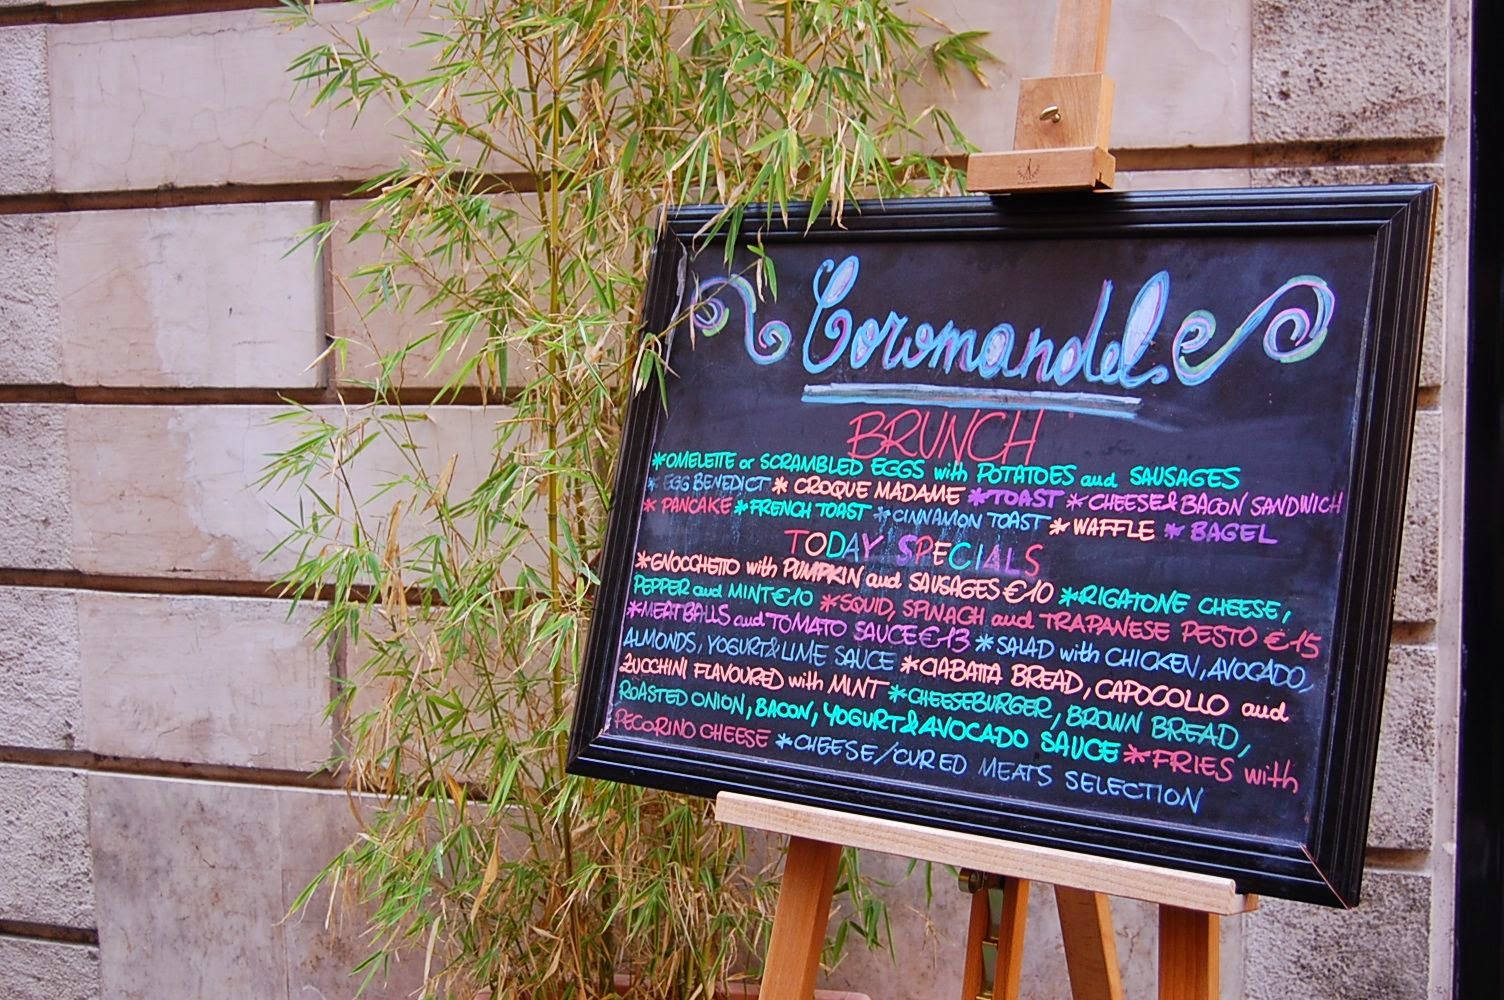 Coromandel
BRUNCH
*OMELETTE or SCRAMBLED EGGS with POTATOES and SAUSAGES
*EGG BENEDICT *CROQUE MADAME *TOAST *CHEESE&BACON SANDWICH
*PANCAKE *FRENCH TOAST *CINNAMON TOAST *WAFFLE *BAGEL
TODAY SPECIALS
*GNOCCHETTO with PUMPKIN and SAUSAGES €10 *RIGATONE CHEESE,
PEPPER and MINT €10 *SQUID, SPINACH and TRAPANESE PESTO €15
*MEATBALLS and TOMATO SAUCE €13 *SALAD with CHICKEN, AVOCADO,
ALMONDS, YOGURT&LIME SAUCE *CIABATTA BREAD, CAPOCOLLO and
ZUCCHINI FLAVOURED with MINT *CHEESEBURGER, BROWN BREAD,
ROASTED ONION, BACON, YOGURT&AVOCADO SAUCE *FRIES with
PECORINO CHEESE *CHEESE/CURED MEATS SELECTION